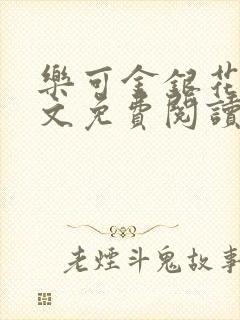 樂可金銀花
文免費閱讀
老煙斗鬼故事